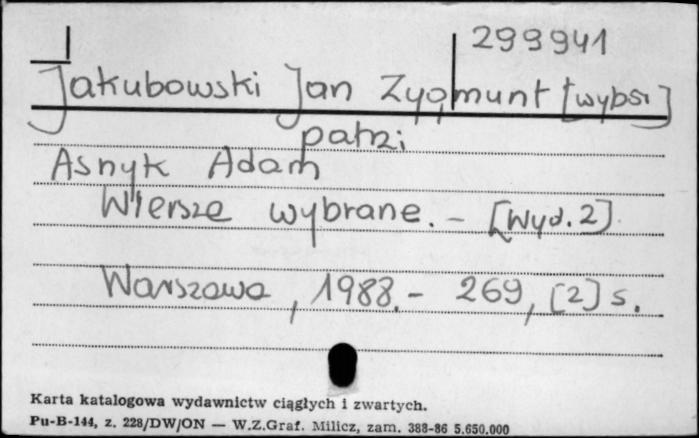 299941
Jakubowski Jan Zygmunt [wybór]
patrz:
Asnyk Adam
Wiersze wybrane. - [Wyd. 2]
Warszawa, 1988. - 269, [2] s.
Karta katalogowa wydawnictw ciągłych i zwartych.
Pu-B-144, z. 228/DW/ON — W.Z.Graf. Milicz, zam. 388-86 5.650.000